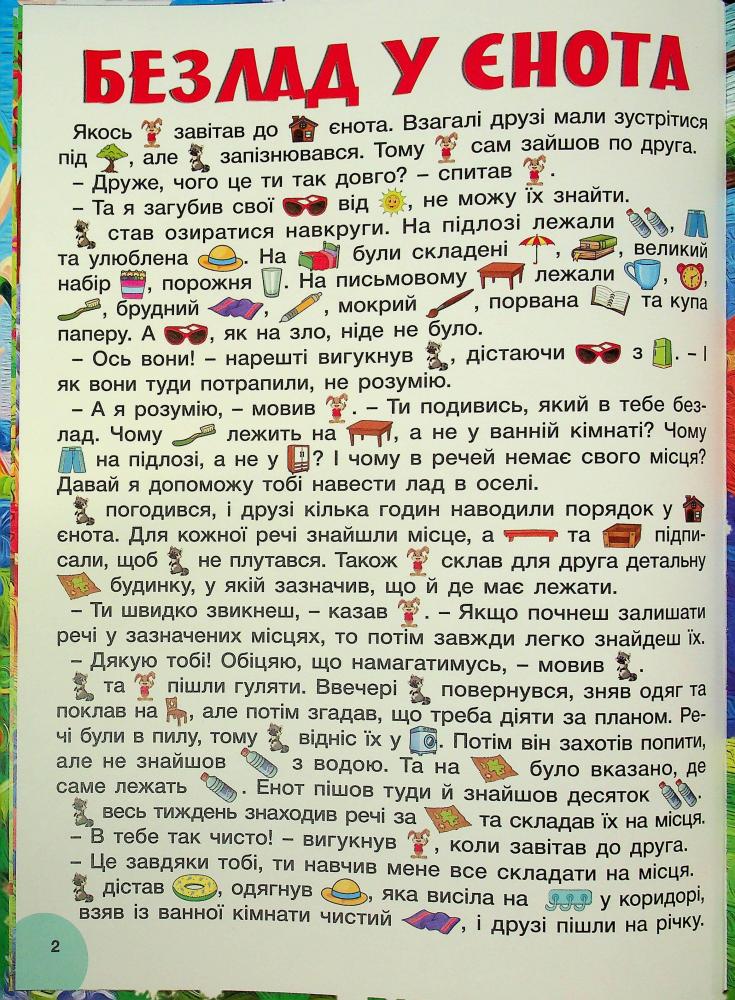 БЕЗЛАД У ЄНОТА
Якось завітав до єнота. Взагалі друзі мали зустрітися
під , але запізнювався. Тому сам зайшов по друга.
– Друже, чого це ти так довго? – спитав .
– Та я загубив свої від , не можу їх знайти.
став озиратися навкруги. На підлозі лежали , 
та улюблена . На були складені , , великий
набір , порожня . На письмовому лежали , ,
, брудний , , мокрий , порвана та купа
паперу. А , як на зло, ніде не було.
– Ось вони! – нарешті вигукнув , дістаючи з . – І
як вони туди потрапили, не розумію.
– А я розумію, – мовив . – Ти подивись, який в тебе без-
лад. Чому лежить на , а не у ванній кімнаті? Чому
на підлозі, а не у ? І чому в речей немає свого місця?
Давай я допоможу тобі навести лад в оселі.
погодився, і друзі кілька годин наводили порядок у
єнота. Для кожної речі знайшли місце, а та підпи-
сали, щоб не плутався. Також склав для друга детальну
будинку, у якій зазначив, що й де має лежати.
– Ти швидко звикнеш, – казав . – Якщо почнеш залишати
речі у зазначених місцях, то потім завжди легко знайдеш їх.
– Дякую тобі! Обіцяю, що намагатимусь, – мовив .
та пішли гуляти. Ввечері повернувся, зняв одяг та
поклав на , але потім згадав, що треба діяти за планом. Ре-
чі були в пилу, тому відніс їх у . Потім він захотів попити,
але не знайшов з водою. Та на було вказано, де
саме лежать . Енот пішов туди й знайшов десяток .
весь тиждень знаходив речі за та складав їх на місця.
– В тебе так чисто! – вигукнув , коли завітав до друга.
– Це завдяки тобі, ти навчив мене все складати на місця.
дістав , одягнув , яка висіла на у коридорі,
взяв із ванної кімнати чистий , і друзі пішли на річку.
2